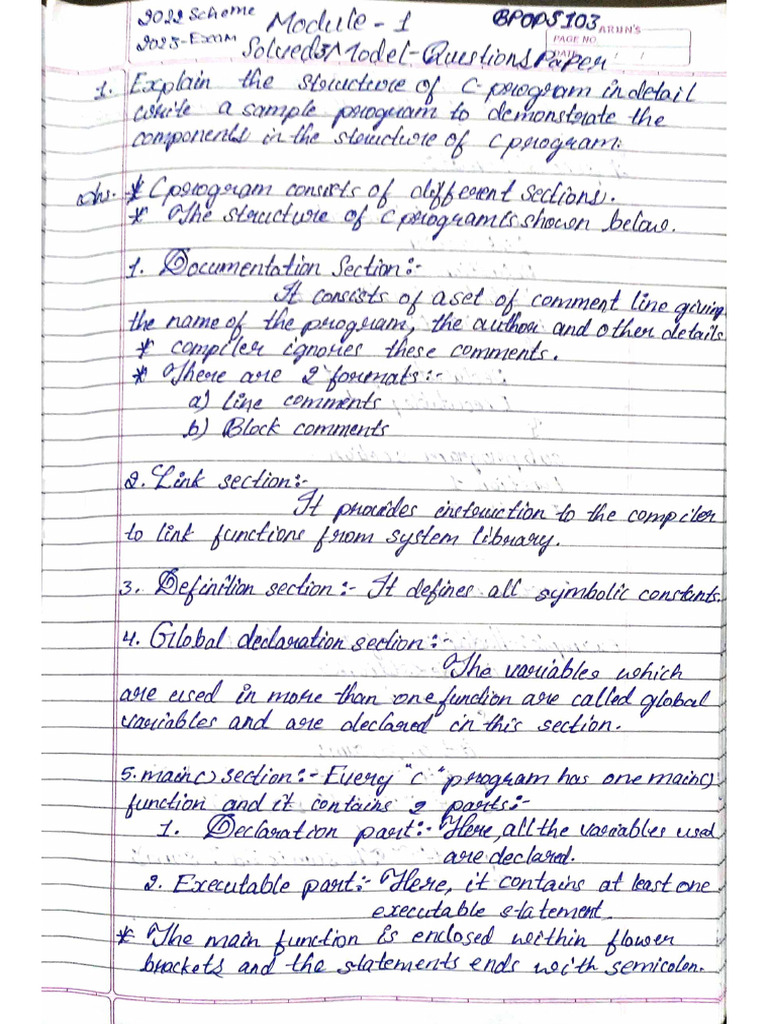 2022 Scheme
Module - 1
BPOPS103
ARJUN'S
PAGE NO.
DATE / /
2023-Exam
Solved Model-Questions Paper
1. Explain the structure of C-program in detail
write a sample program to demonstrate the
components in the structure of C program.
Ans. * C program consists of different sections.
* The structure of C program is shown below.
1. Documentation Section:-
It consists of a set of comment line giving
the name of the program, the author and other details
* compiler ignories these comments.
* There are 2 formats:-
a) Line comments
b) Block comments
2. Link section:-
It provides instruction to the compiler
to link functions from system library.
3. Definition section:- It defines all symbolic constants.
4. Global declaration section:-
The variables which
are used in more than one function are called global
variables and are declared in this section.
5. main() section:- Every "C" program has one main()
function and it contains 2 parts:-
1. Declaration part:- Here, all the variables used
are declared.
2. Executable part:- Here, it contains at least one
executable statement.
* The main function is enclosed within flower
brackets and the statements ends with semicolon.